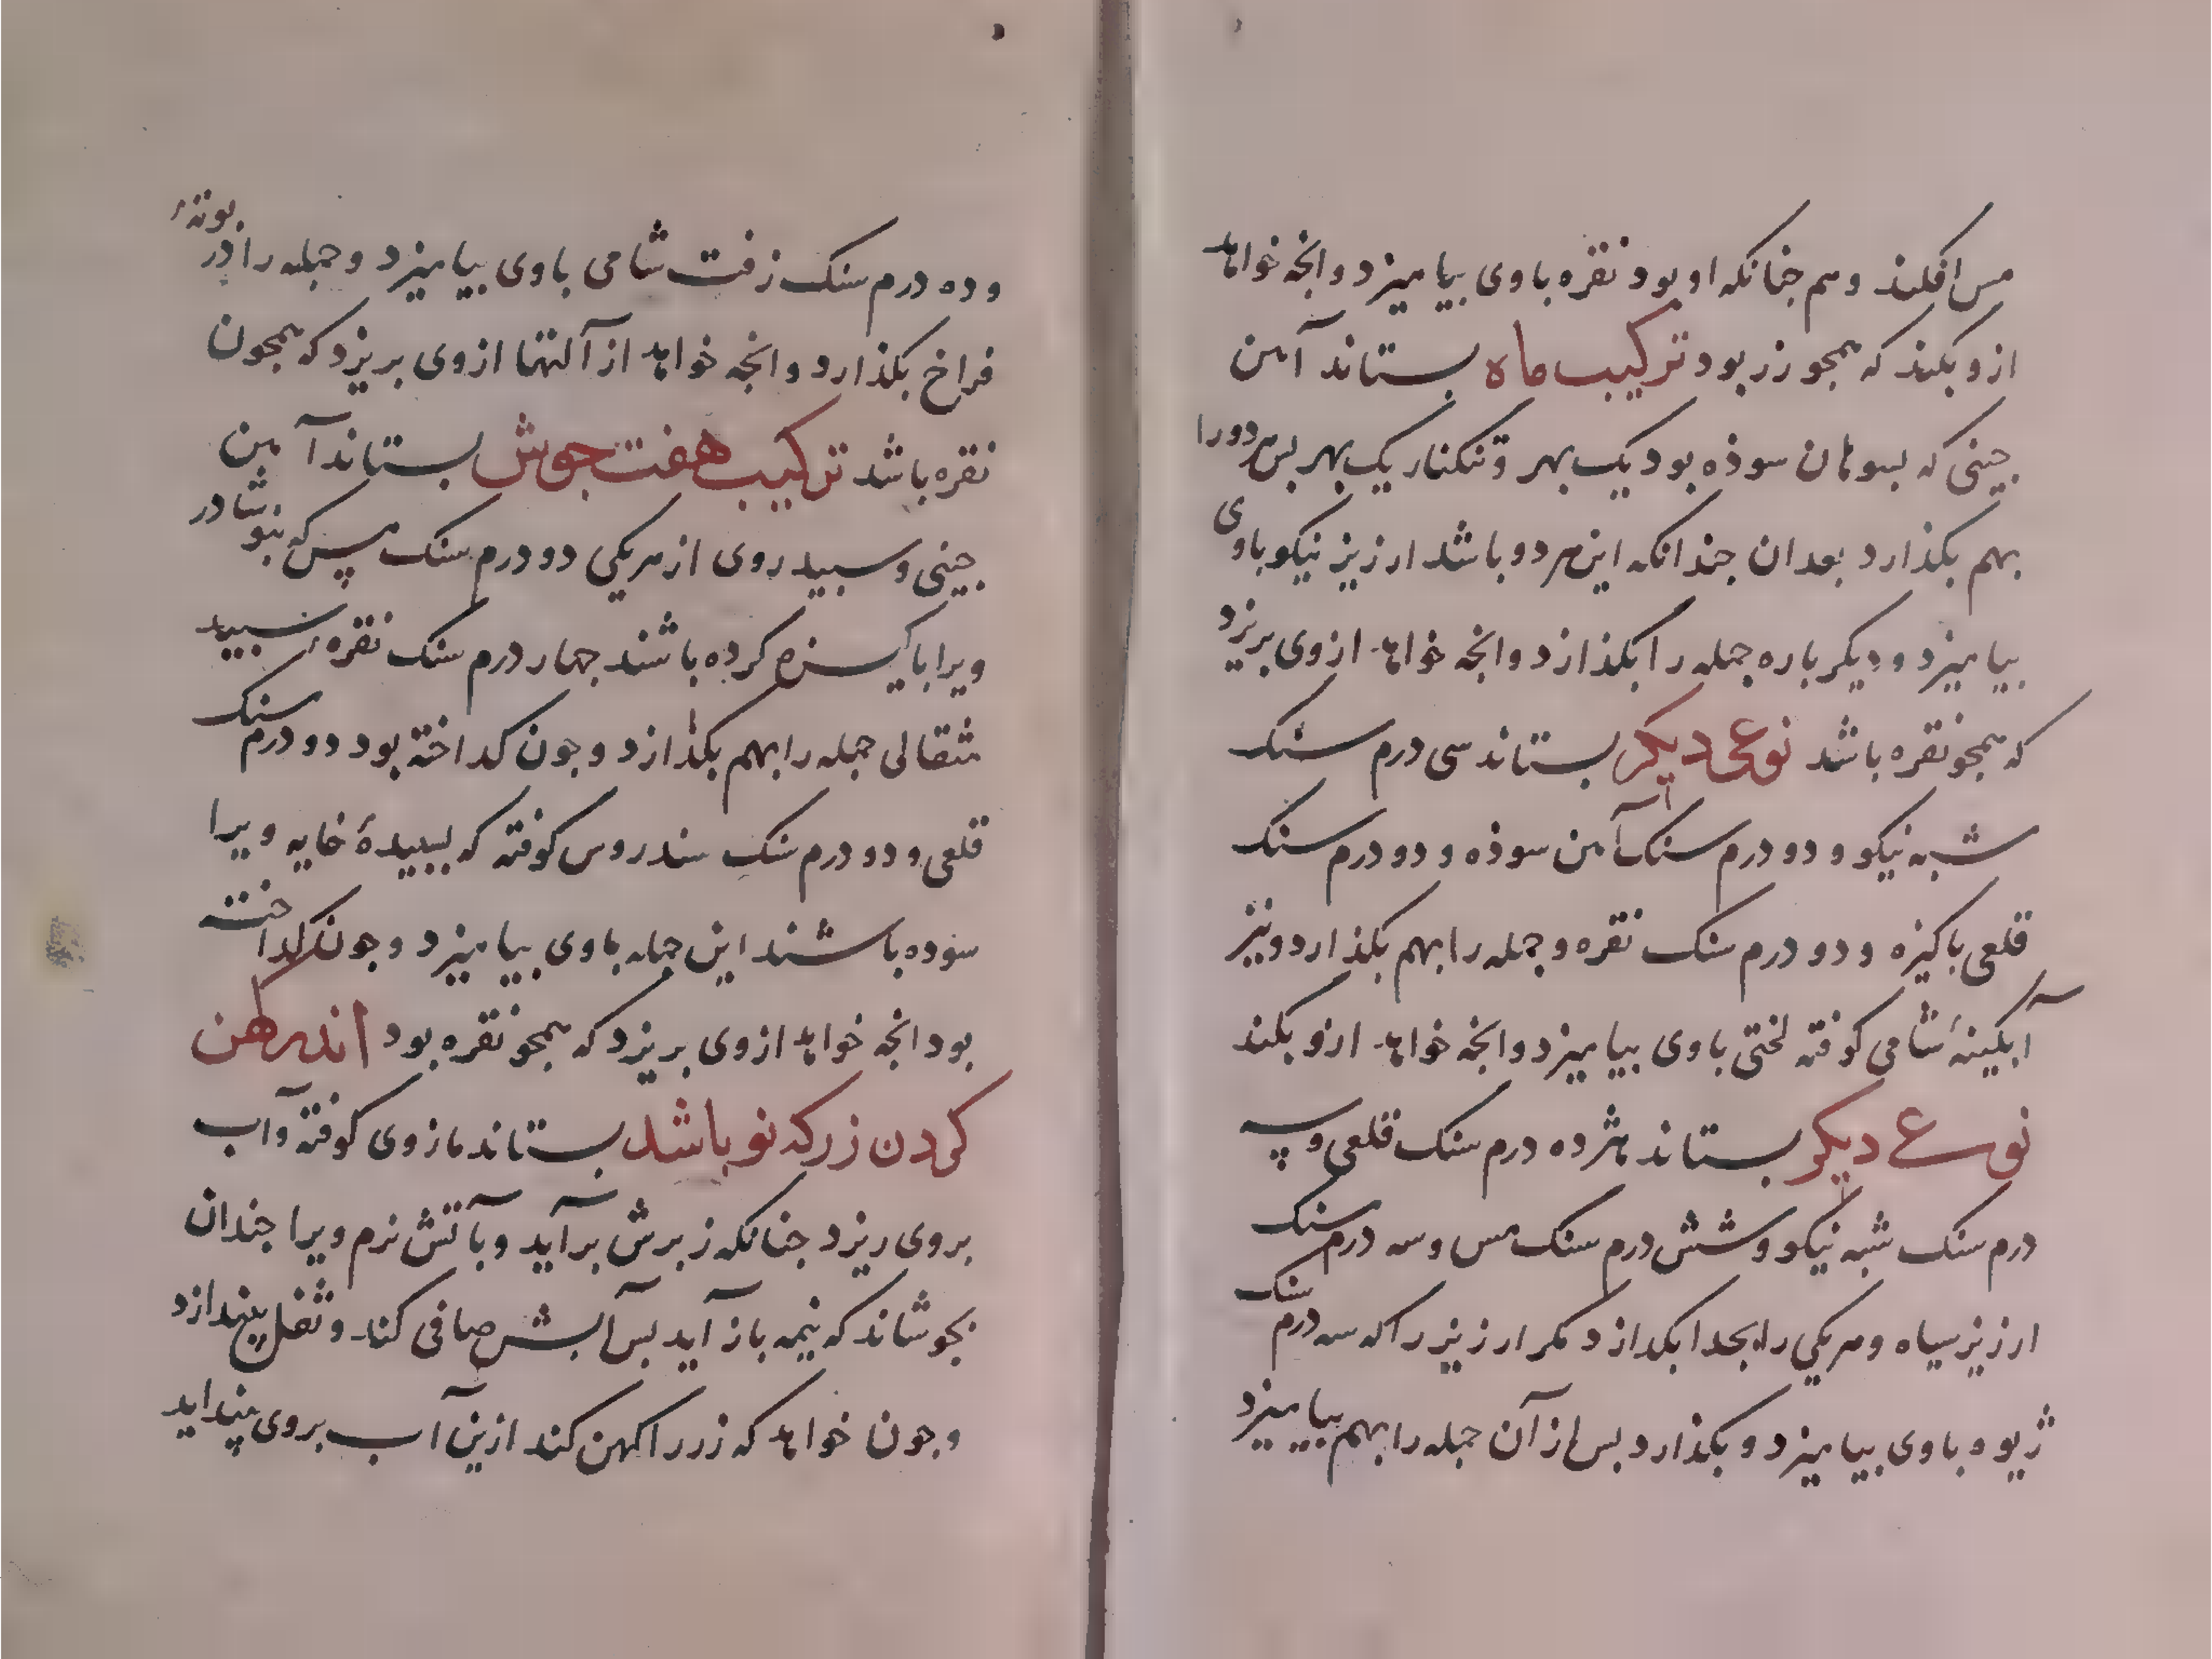 مس افکند و هم جنانکه او بود نقره باوی بیامیزد وانجه خواهد
ازو بکند که همجو زر بود ترکیب ماه بستاند آهن
جینی که بسوهان سوذه بود یک بهر و تنکنار یک بهر بس هردو را
بهم بکذارد بعد ان جندانکه این هر دو باشد ارزیز نیکو باوی
بیامیزد و دیکر باره جمله را بکذازد وانجه خواهد ازوی بریزد
که همجو نقره باشد نوعی دیکر بستاند سی درم سنک
شبه نیکو و دو درم سنک آهن سوذه و دو درم سنک
قلعی باکیزه و دو درم سنک نقره و جمله را بهم بکذارد و نیز
آبکینهٔ شامی کوفته لختی باوی بیامیزد وانجه خواهد ازو بکند
نوعی دیکر بستاند هژده درم سنک قلعی و سه
درم سنک شبه نیکو و شش درم سنک مس و سه درم سنک
ارزیز سیاه و هر یکی را بجدا بکدازد مکر ارزیز را که سه درم سنک
ژیوه باوی بیامیزد و بکذارد بس از آن جمله را بهم بیامیزد
و ده درم سنک زفت شامی باوی بیامیزد و جمله را در بوتهٔ
فراخ بکذارد وانجه خواهد از آلتها ازوی بریزد که همجون
نقره باشد ترکیب هفت جوش بستاند آهن
جینی و سبید روی از هر یکی دو درم سنک مس که بنوشادر
ویرا باکیزه کرده باشند جهار درم سنک نقره سبید
مثقالی جمله را بهم بکذازد و جون کداخته بود دو درم سنک
قلعی و دو درم سنک سندروس کوفته که بسبیدهٔ خایه ویرا
سوده باشند این جمله باوی بیامیزد و جون کداخته
بود انجه خواهد ازوی بریزد که همجو نقره بود اندر کهن
کردن زر که نو باشد بستاند مازوی کوفته و آب
بروی ریزد جنانکه زبرش برآید و بآتش نرم ویرا جندان
بجوشاند که نیمه باز آید بس آبش صافی کند و ثفل بیندازد
و جون خواهد که زر را کهن کند ازین آب بروی بینداید